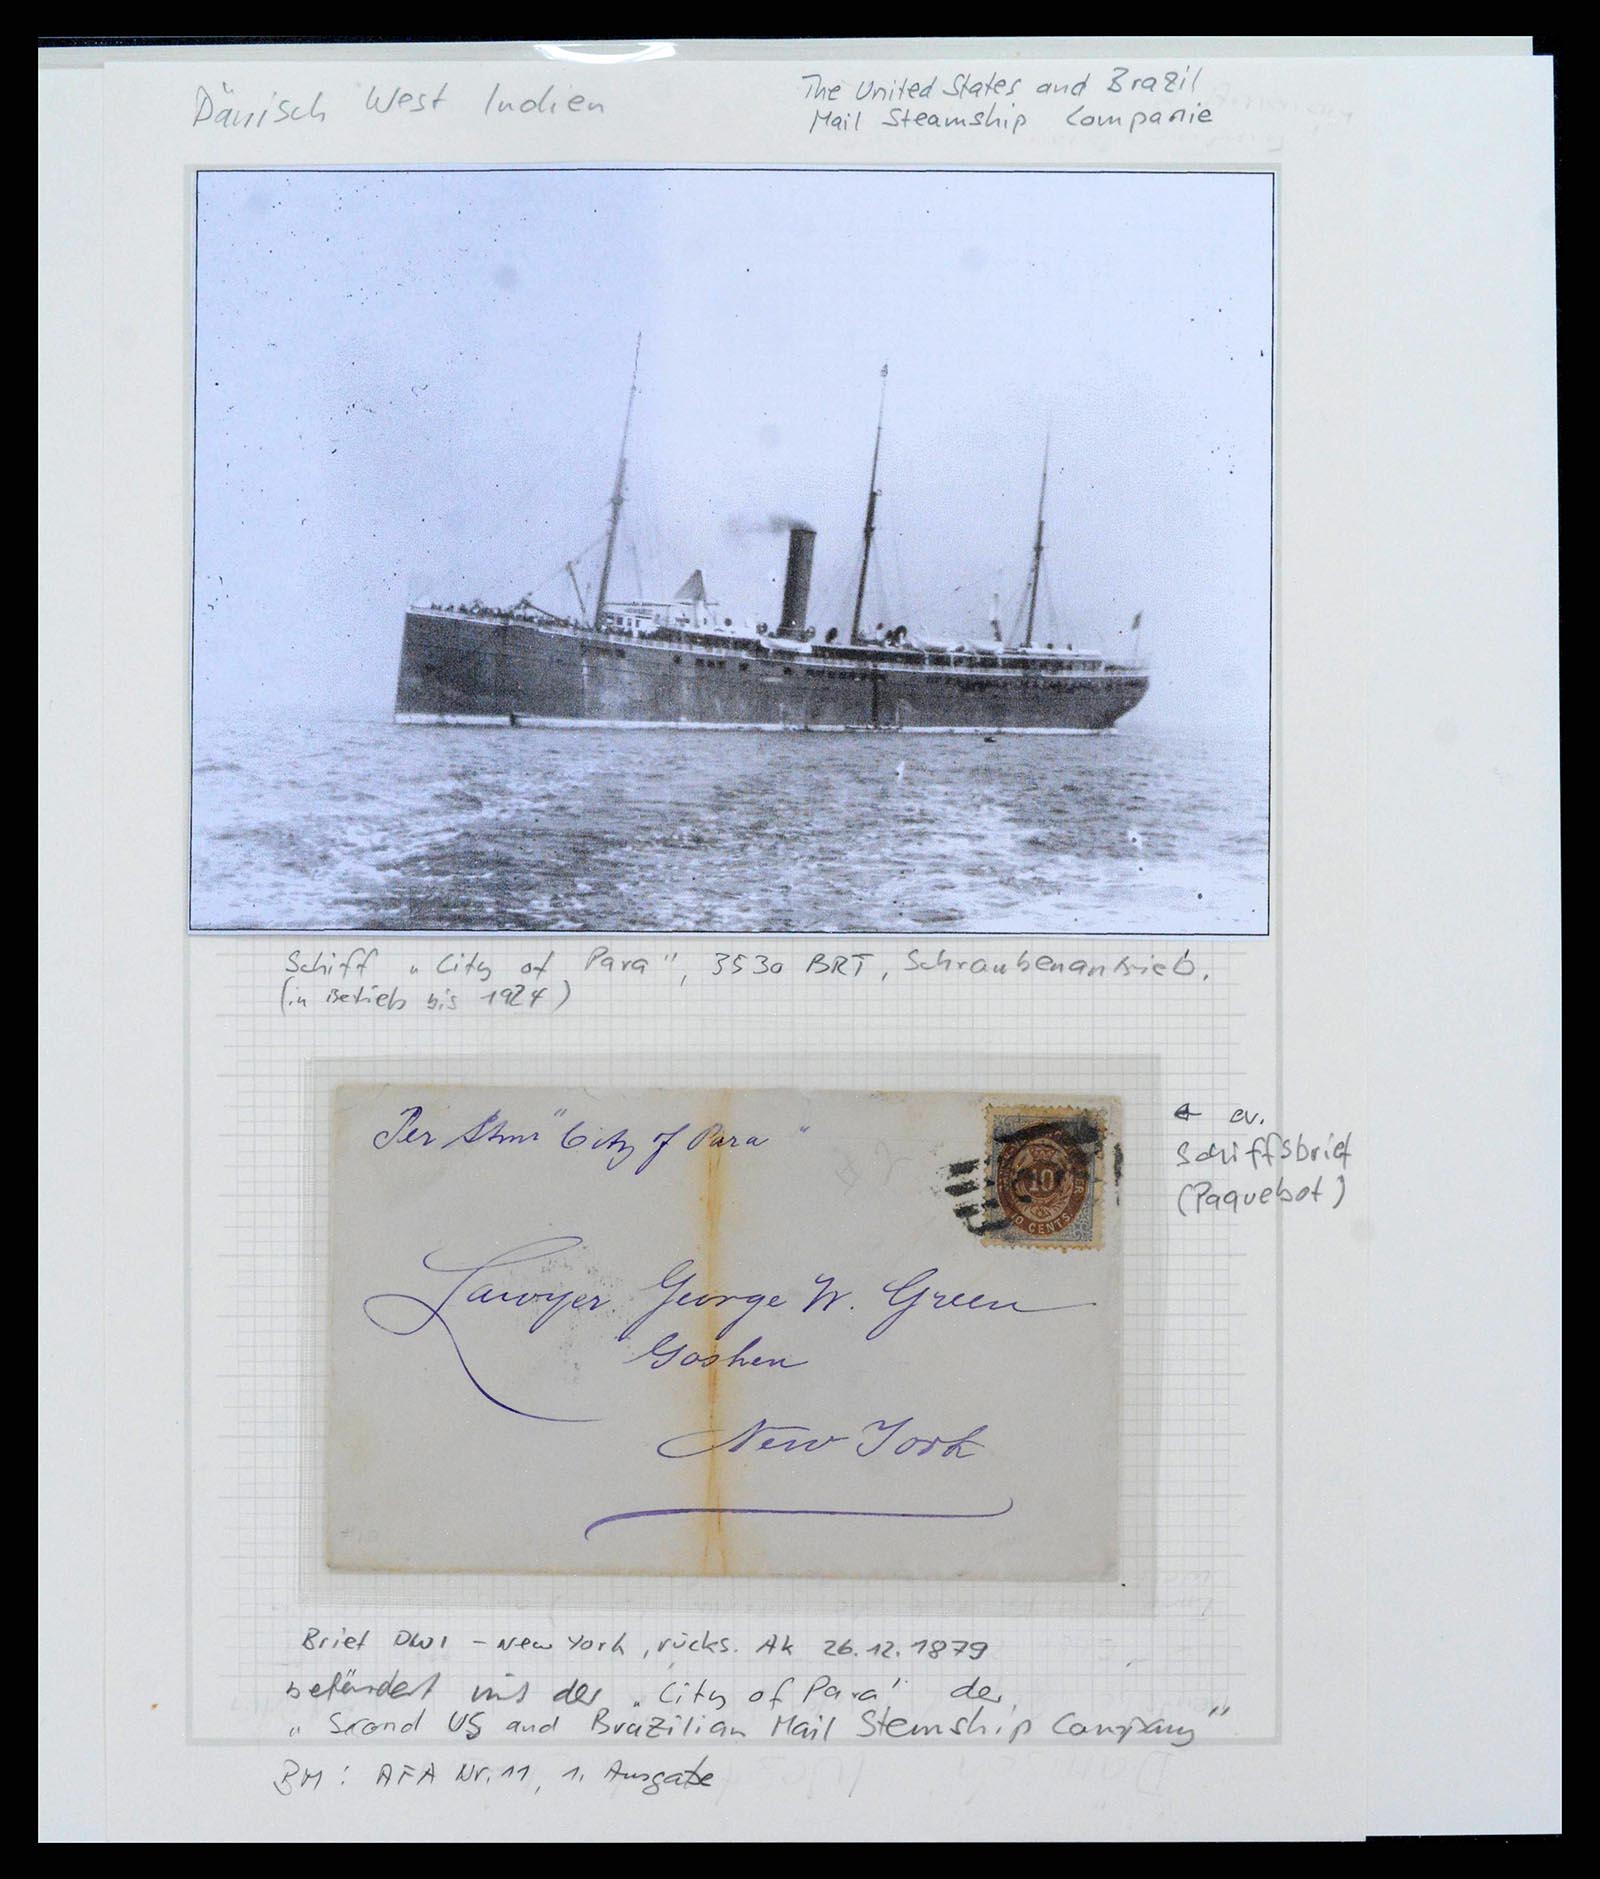 Dänisch West Indien
The United States and Brazil
Mail Steamship Companie
Schiff "City of Para", 3530 BRT, Schraubenantrieb.
(in Betrieb bis 1924)
Per Stmr "City of Para"
10
10 CENTS
← ev.
Schiffsbrief
(Paquebot)
Lawyer George W. Green
Goshen
New York
Brief DWI - New York, rücks. AK 26.12.1879
befördert mit der "City of Para" der
"Scond US and Brazilian Mail Stemship Company"
BM: AFA Nr. 11, 1. Ausgabe